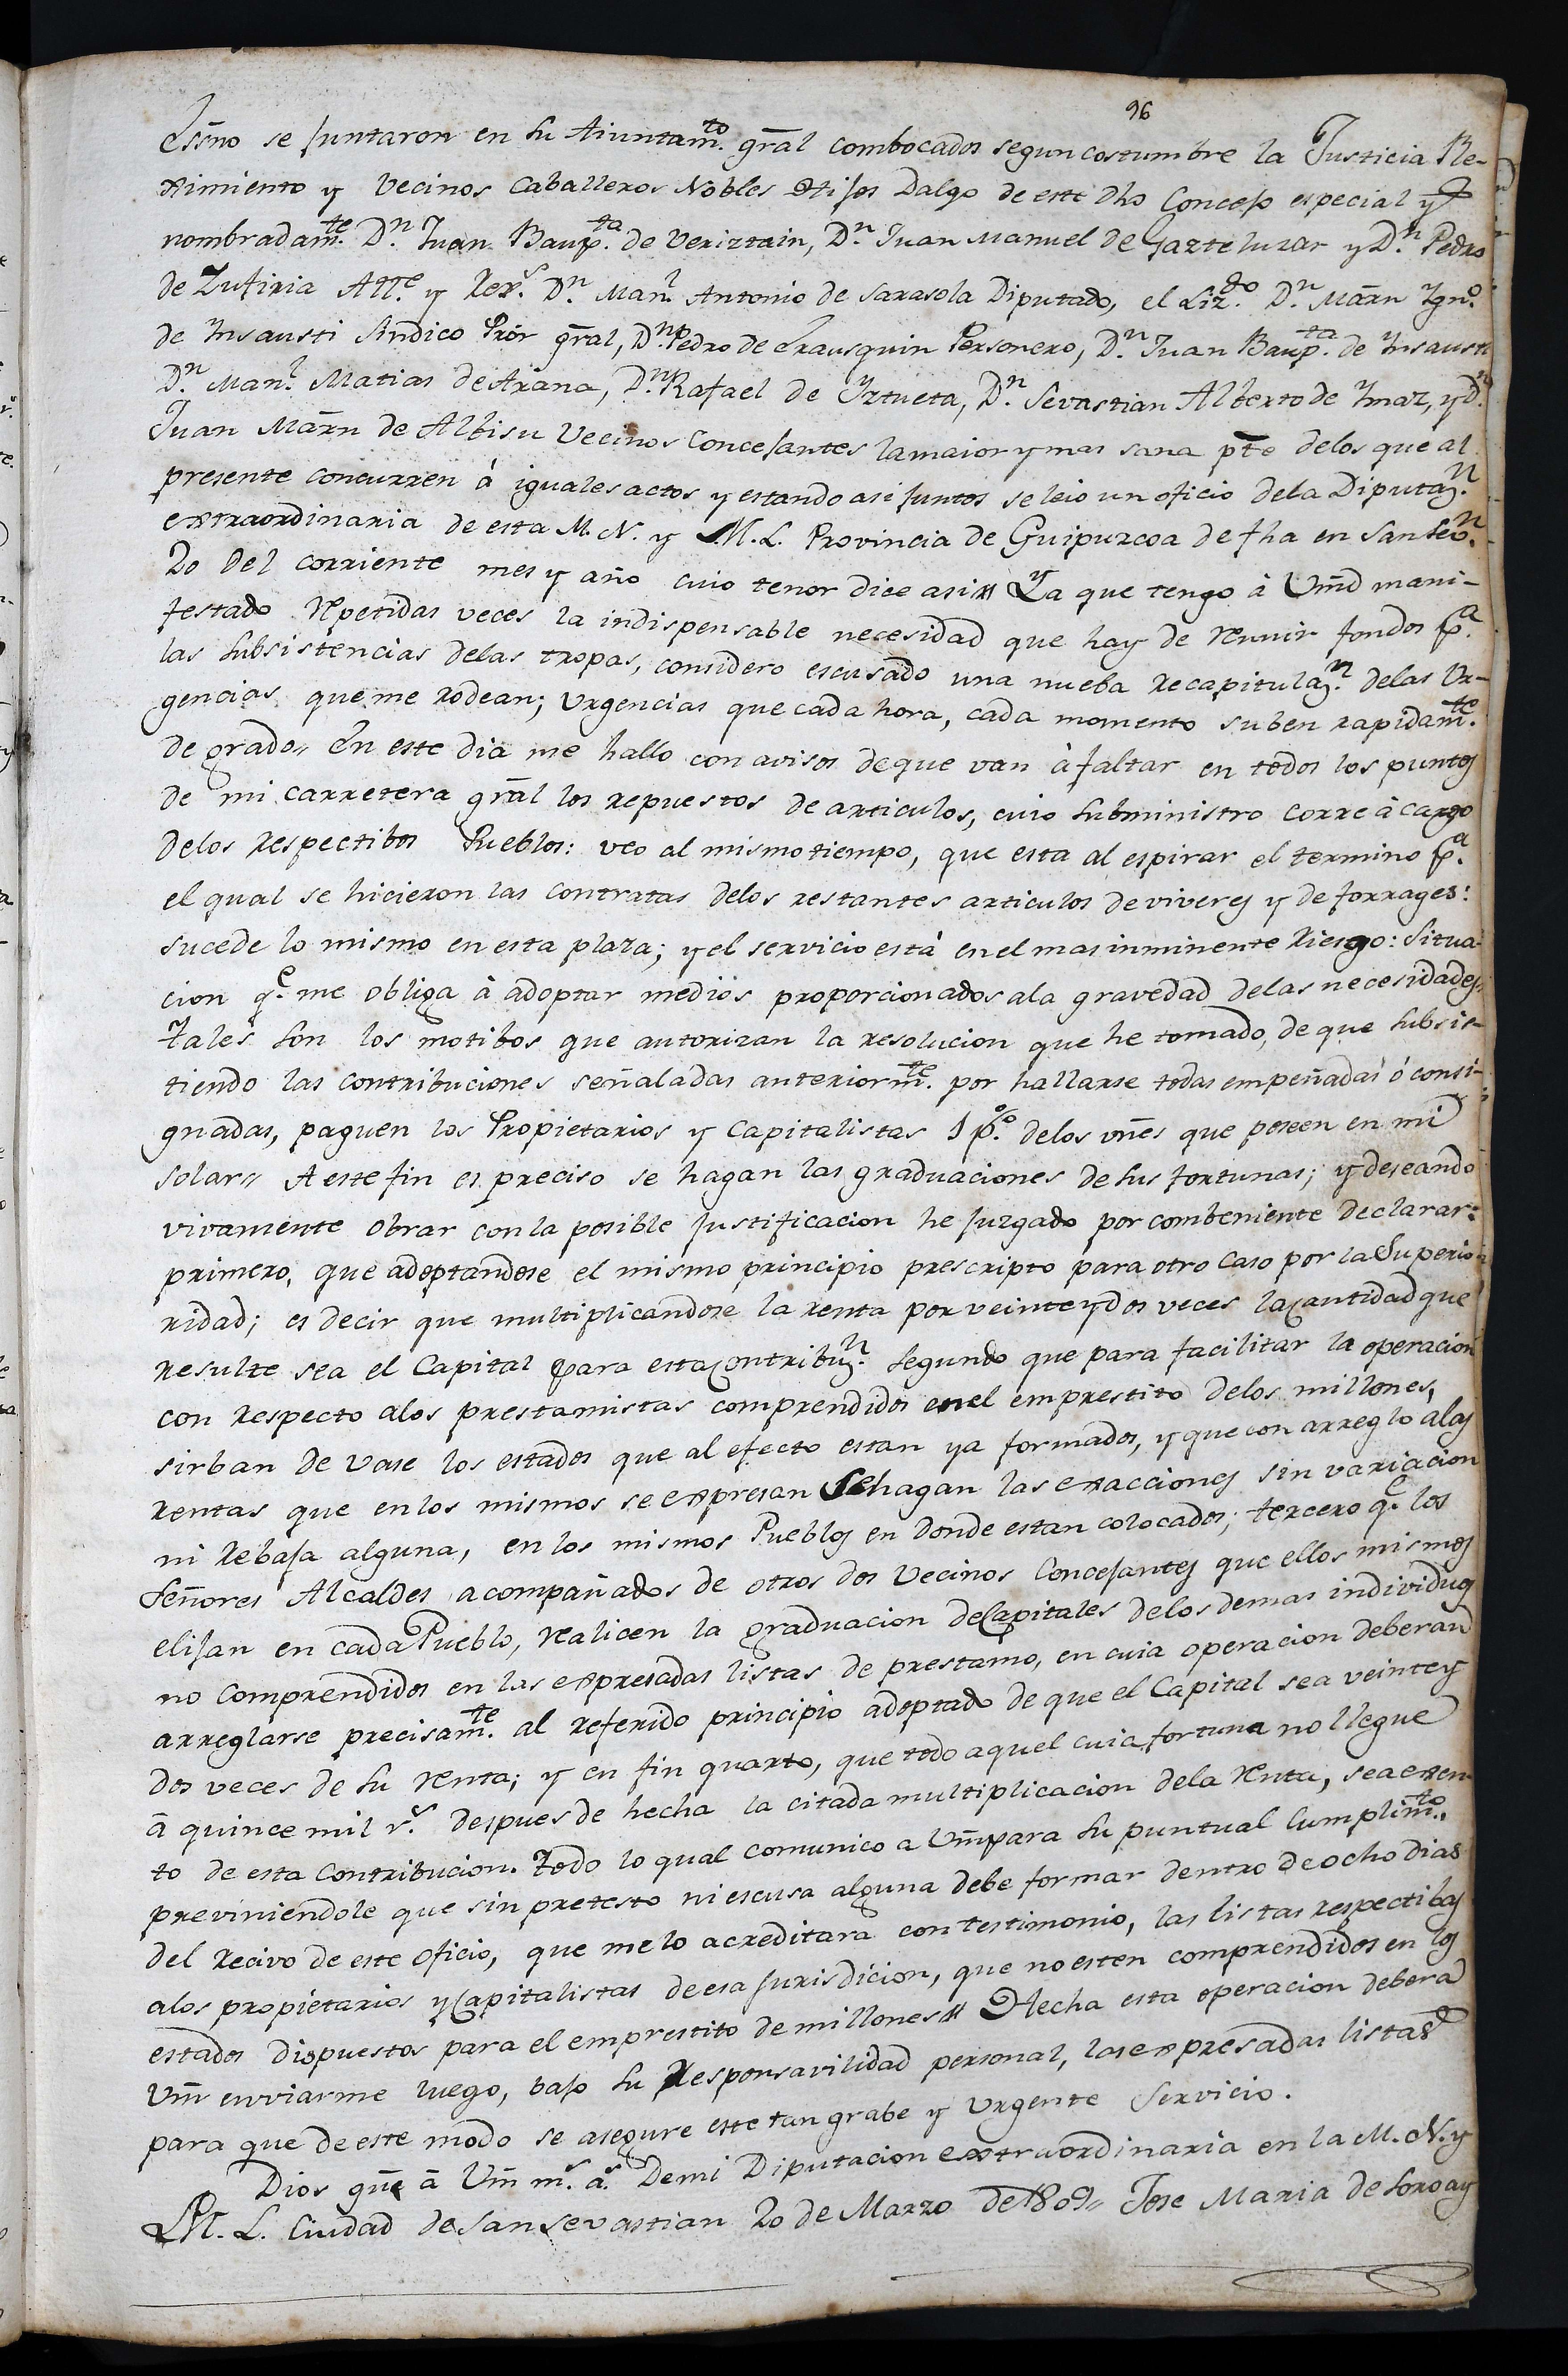 96
Essno se juntaron en su Aiuntam.to gral combocados segun costumbre la Justicia Re-
ximiento y Vecinos Caballeros Nobles Hijos Dalgo de este dho Concejo especial y
nombradam.te D.n Juan Baup.ta de Veriztain, D.n Juan Manuel de Gazteluzar y D.n Pedro
de Zufiria All.e y Rex.s D.n Man.l Antonio de Sarasola Diputado, el Liz.do D.n Marn Ygn.o
de Ynsausti Sindico Pror gral, D.n Pedro de Erausquin Personero, D.n Juan Baup.ta de Ynsausti
D.n Man.l Matias de Arana, D.n Rafael de Yztueta, D.n Sevastian Alberto de Ymaz, y D.n
Juan Marn de Albisu Vecinos Concejantes la maior y mas sana pte delos que al
presente concurren á iguales actos y estando asi juntos se leio un oficio dela Diputaz.n
extraordinaria de esta M. N. y M. L. Provincia de Guipuzcoa de fha en San Seu.n
20 del corriente mes y año cuio tenor dice asi // Ya que tengo à Vmd mani-
festado repetidas veces la indispensable necesidad que hay de reunir fondos p.a
las subsistencias delas tropas, considero escusado una nueba recapitulaz.n delas Ur-
gencias que me rodean; Urgencias que cada hora, cada momento suben rapidam.te
de grado // En este dia me hallo con avisos de que van à faltar en todos los puntos
de mi carretera gral los repuestos de articulos, cuio subministro corre à cargo
delos respectibos Pueblos: veo al mismo tiempo, que esta al espirar el termino p.a
el qual se hicieron las contratas delos restantes articulos de viveres y de forrages:
sucede lo mismo en esta plaza; y el servicio está en el mas inminente riesgo: Situa-
cion q.e me obliga à adoptar medios proporcionados ala gravedad delas necesidades
Tales son los motibos que autorizan la resolucion que he tomado, de que subsis-
tiendo las contribuciones señaladas anteriorm.te por hallarse todas empeñadas ó consi-
gnadas, paguen los Propietarios y Capitalistas 1 p.% delos vnes que poseen en mi
solar // A este fin es preciso se hagan las graduaciones de sus fortunas; y deseando
vivamente obrar con la posible justificacion he juzgado por combeniente declarar:
primero, que adoptandose el mismo principio prescripto para otro caso por la Superio-
ridad; es decir que multiplicandose la renta por veinte y dos veces la cantidad que
resulte sea el Capital para esta contribuz.n Segundo que para facilitar la operacion
con respecto alos prestamistas comprendidos en el emprestito delos millones,
sirban de vase los estados que al efecto estan ya formados, y que con arreglo alas
rentas que en los mismos se expresan Se hagan las exacciones sin variacion
ni rebaja alguna, en los mismos Pueblos en donde estan colocados; tercero q.e los
Señores Alcaldes acompañados de otros dos Vecinos Concejantes que ellos mismos
elijan en cada Pueblo, realicen la graduacion de Capitales delos demas individuos
no comprendidos en las expresadas listas de prestamo, en cuia operacion deberan
arreglarse precisam.te al referido principio adoptado de que el Capital sea veinte y
dos veces de su renta; y en fin quarto, que todo aquel cuia fortuna no llegue
à quince mil r.s despues de hecha la citada multiplicacion dela renta, sea exen-
to de esta contribucion. Todo lo qual comunico a Vm para su puntual Cumplim.to,
previniendole que sin pretesto ni escusa alguna debe formar dentro de ocho dias
del recivo de este oficio, que me lo acreditara con testimonio, las listas respectibas
alos propietarios y Capitalistas de esa jurisdicion, que no esten comprendidos en los
estados dispuestos para el emprestito de millones // Hecha esta operacion debera
Vm enviarme luego, bajo su responsavilidad personal, las expresadas listas
para que de este modo se asegure este tan grabe y Urgente Servicio.
Dios gue à Vm m.s a.s De mi Diputacion extraordinaria en la M. N. y
M. L. Ciudad de San Sevastian 20 de Marzo de 1809 // Jose Maria de Soroa y